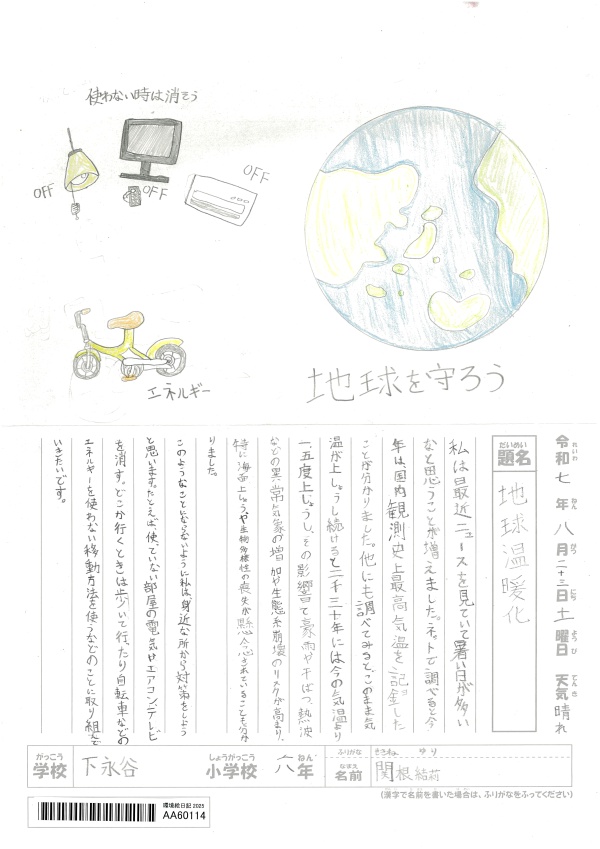 使わない時は消そう
OFF
OFF
OFF
エネルギー
地球を守ろう
令和七年八月二十三日土曜日 天気晴れ
れいわ ねん がつ にち ようび てんき
だいめい
題名 地球温暖化
私は最近ニュースを見ていて暑い日が多い
なと思うことが増えました。ネットで調べると今
年は、国内観測史上最高気温を記録した
ことが分かりました。他にも調べてみると、このまま気
温が上しょうし続けると二千三十年には今の気温より
一、五度上しょうし、その影響で豪雨や干ばつ、熱波
などの異常気象の増加や生態系崩壊のリスクが高まり、
特に海面上しょうや生物多様性の喪失が懸念されていることも分か
りました。
このようなことにならないように私は、身近な所から対策をしよう
と思います。たとえば使っていない部屋の電気やエアコン、テレビ
を消す。どこか行くときは歩いて行ったり自転車などの
エネルギーを使わない移動方法を使うなどのことに取り組んで
いきたいです。
がっこう しょうがっこう ねん
学校 下永谷 小学校 六年
ふりがな せきね ゆり
なまえ
名前 関根結莉
(漢字で名前を書いた場合は、ふりがなをふってください)
環境絵日記 2025
AA60114